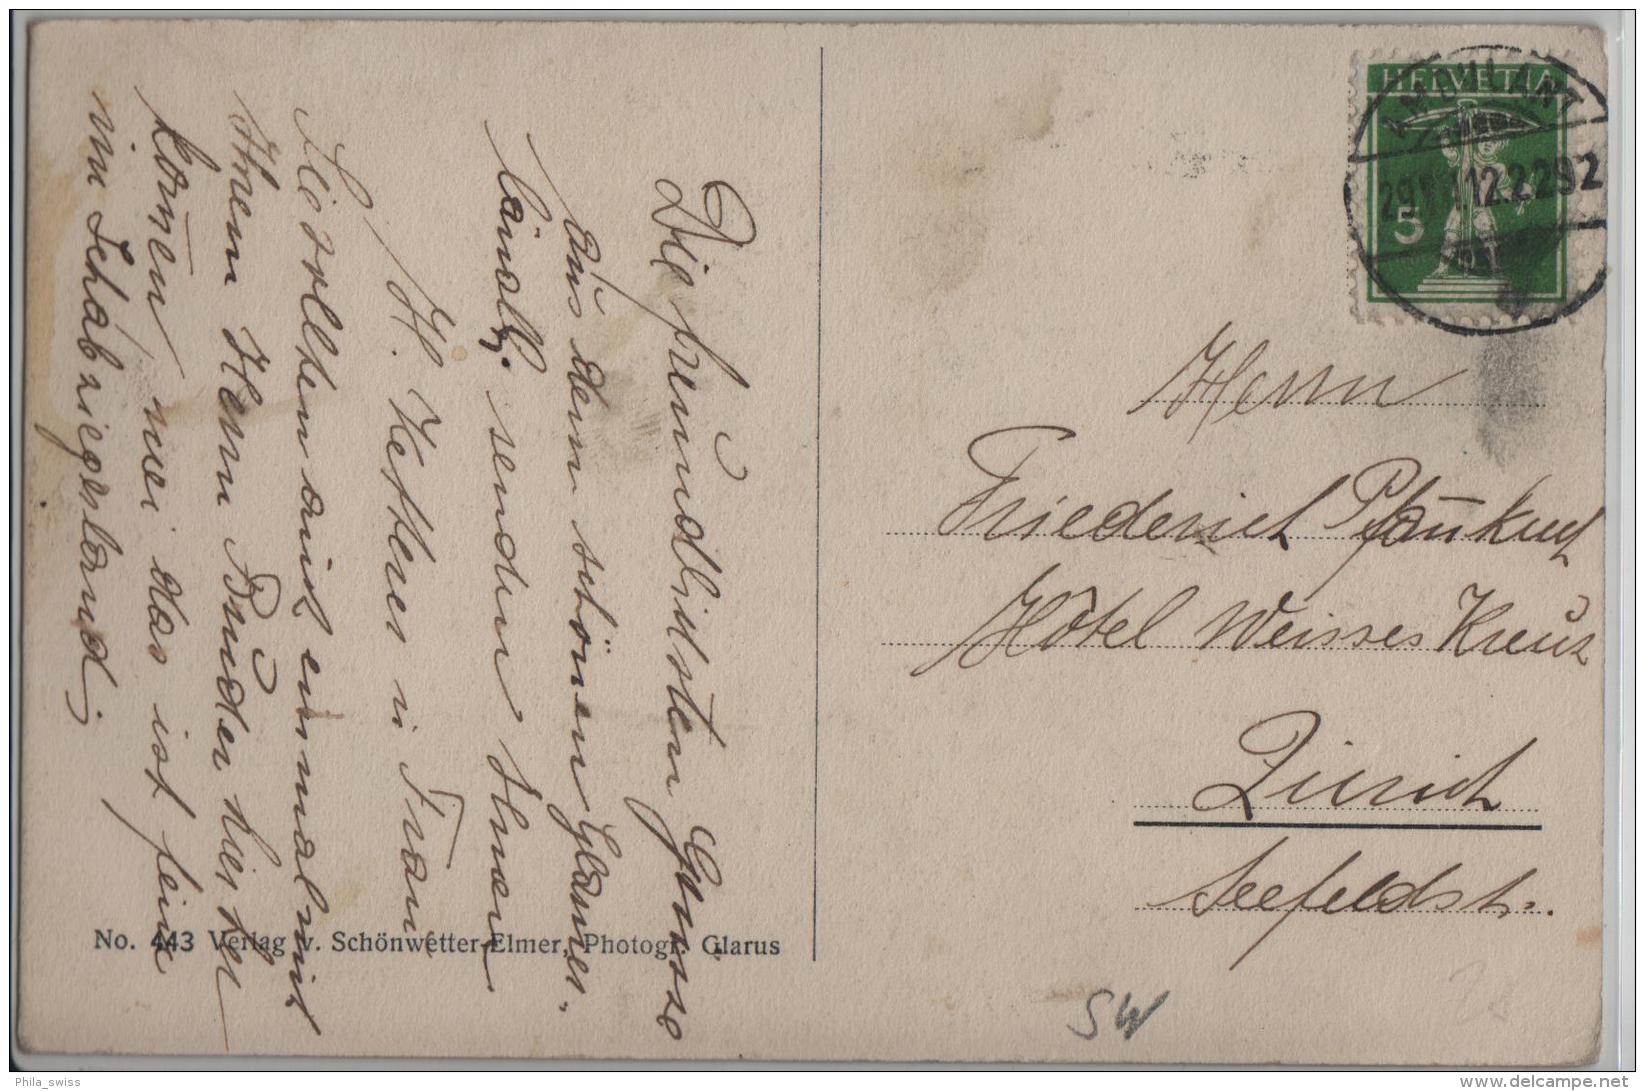 Die freundlichsten Grüsse
aus dem schönen Glarner-
länd. senden Ihnen
H. Hefti u. Frau
Sie sollten auch einmal mit
Ihrem Herrn Bruder hierher
kom̅en, wei das ist fein
im Schabziegerland.
No. 443 Verlag v. Schönwetter-Elmer, Photogr. Glarus
HELVETIA
5
AMBULANT
12.2292
Herrn
Friederich Pfan̅kuch
Hôtel Weisses Kreuz
Zürich
Seefeldstr.
SW
Phila_swiss
delcampe.net